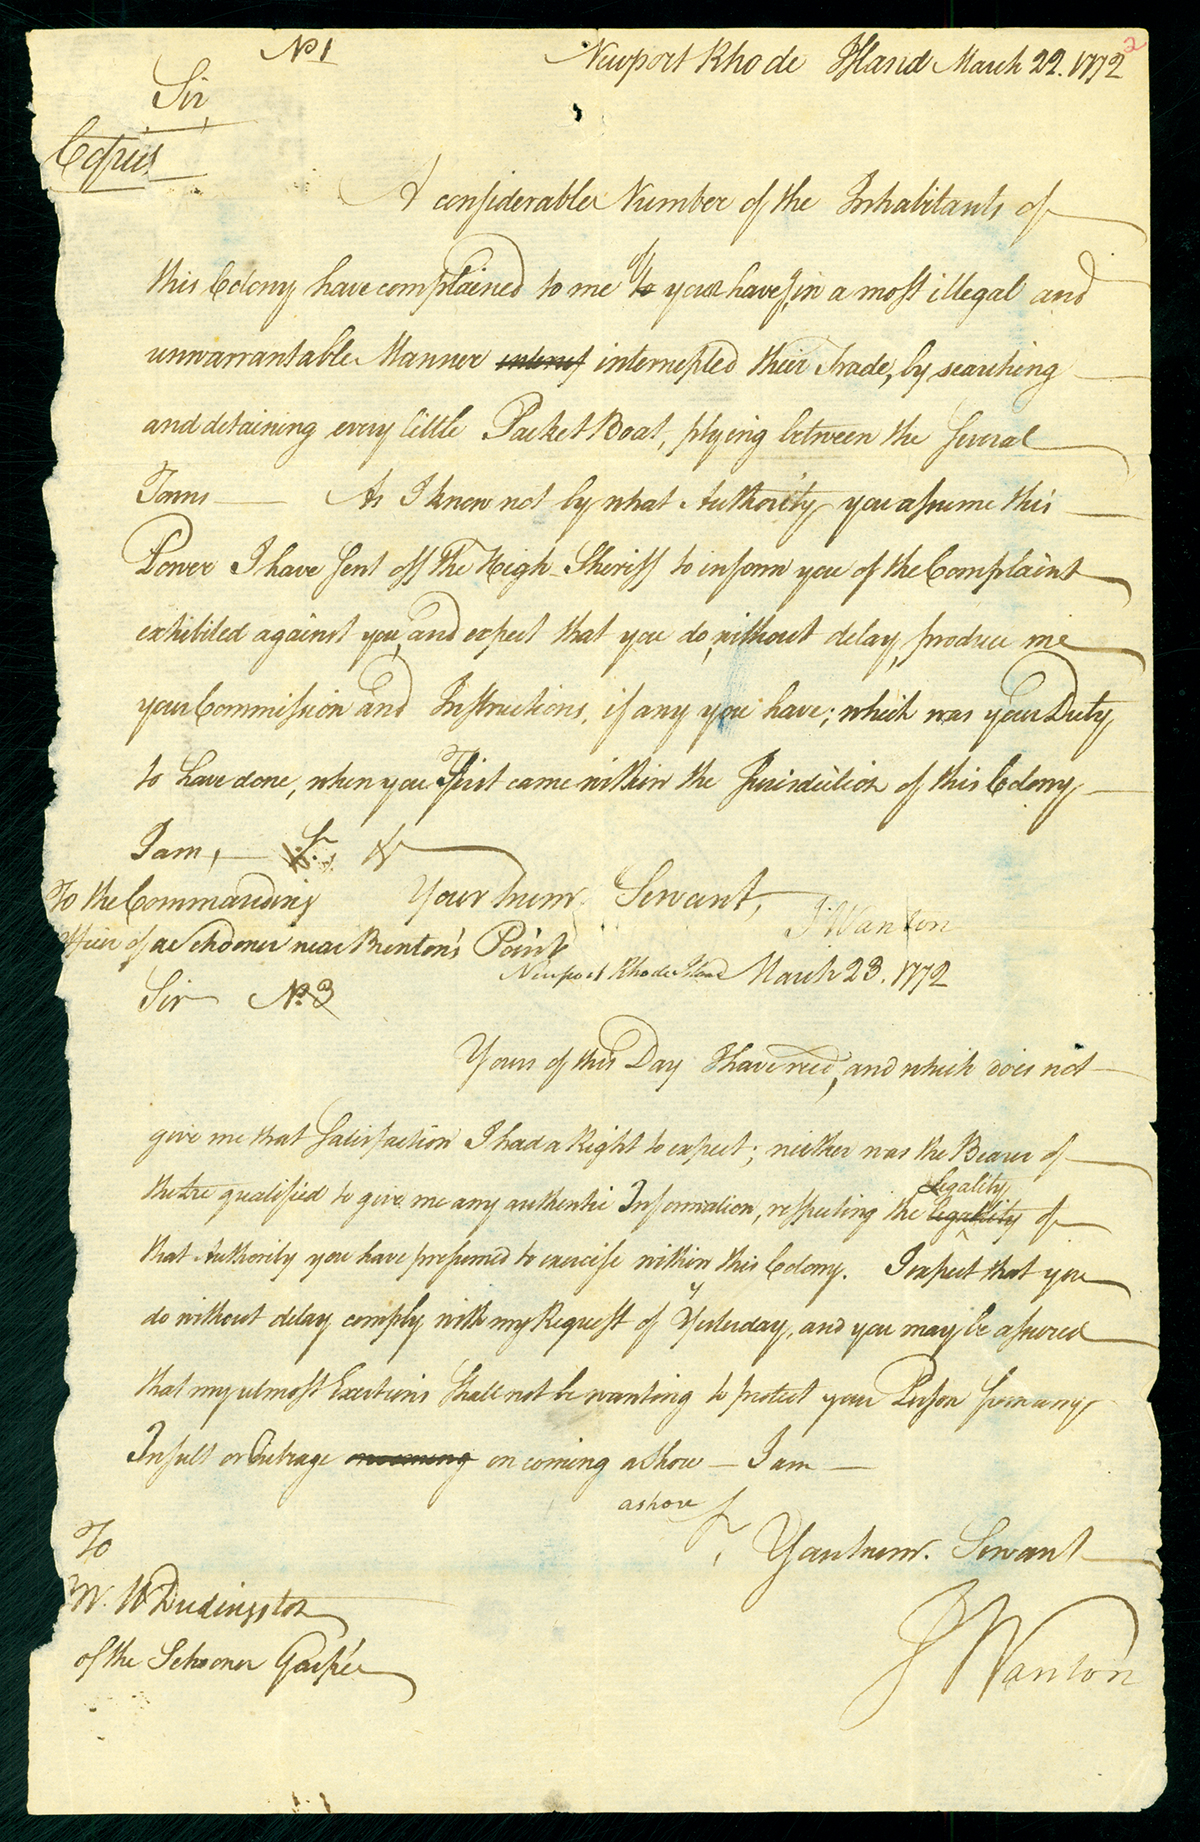 No 1 Newport Rhode Island March 22. 1772
2
Sir,
Copies
A considerable Number of the Inhabitants of
this Colony have complained to me of your having, in a most illegal and
unwarrantable Manner interrupted their Trade, by searching
and detaining every little Packet Boat, plying between the several
Towns — As I know not by what Authority you assume this
Power I have sent off the High-Sheriff to inform you of the Complaint
exhibited against you, and expect that you do, without delay, produce me
your Commission and Instructions, if any you have; which was your Duty
to have done, when you First came within the Jurisdiction of this Colony
I am, — Sr.
To the Commanding Your hum. Servant,
J. Wanton
Officer of a Schooner near Brenton's Point
Newport Rhode Island March 23. 1772
Sir No. 3
Yours of this Day I have recd, and which does not
give me that Satisfaction I had a Right to expect; neither was the Bearer of
the Lre qualified to give me any authentic Information, respecting the legality Legality of
that Authority you have presumed to exercise within this Colony. I expect that you
do without delay comply with my Request of Yesterday, and you may be assured
that my utmost Exertions shall not be wanting to protect your Person from any
Insult or Outrage on coming ashore — I am —
ashore
Sr, Your hum. Servant
To
W. Dudingston
of the Schooner Gaspée
J Wanton